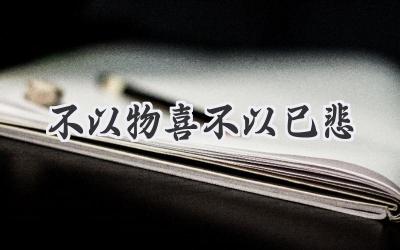 不以物喜不以已悲